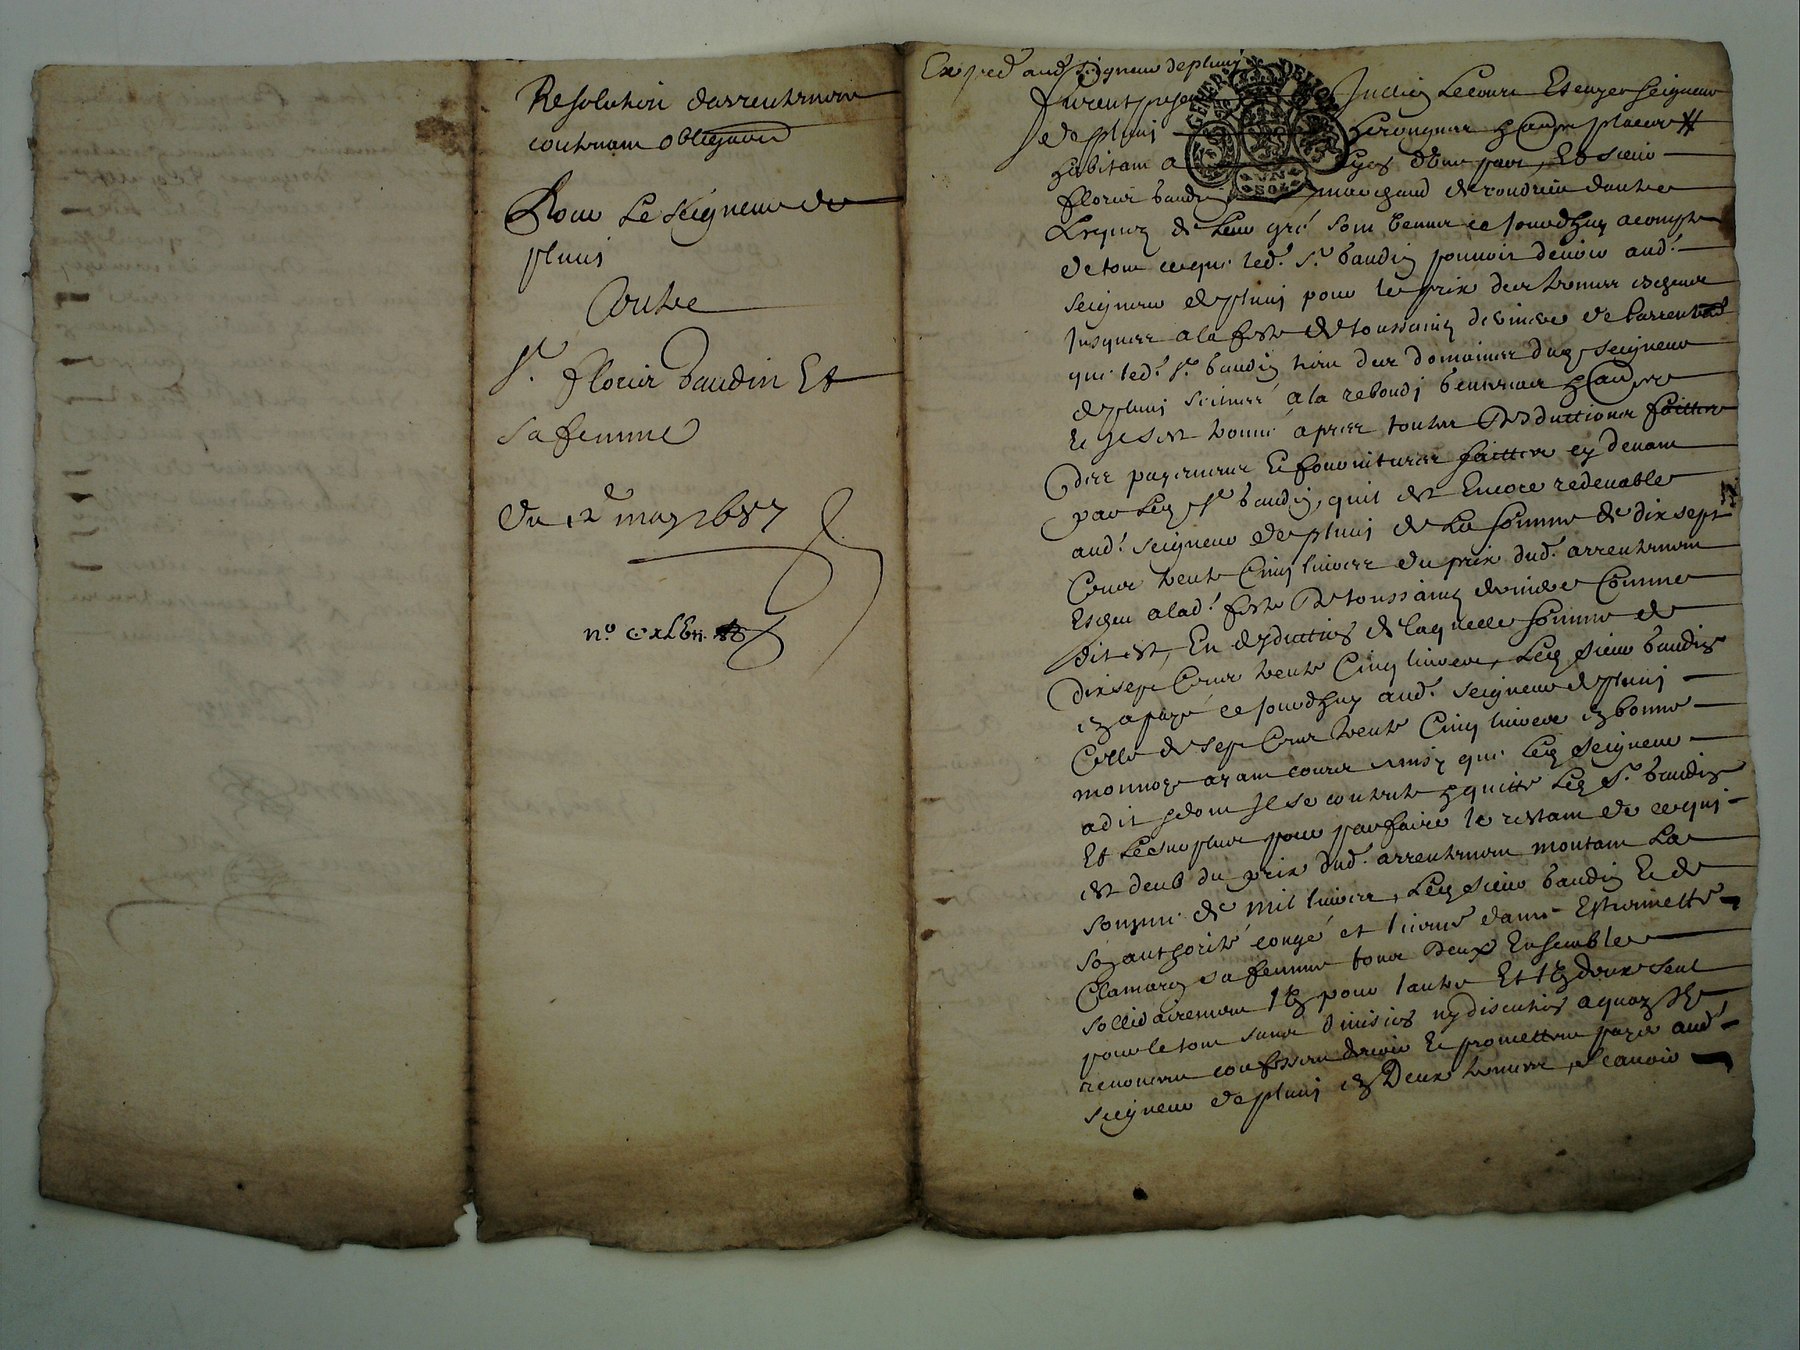 Resolution darrentemen
contenant obligaon
Pour Le Seigneur de
pluvi
Contre
Sr. florir baudin Et
sa femme
Du 12e may 1687
n.o
Exped aud Seigneur de pluvi
furent presen Jullien Lecourt Escuyer Seigneur
de pluvi et autres places
habitant a dune part, Et sieur
florir baudin marchand dautre
Lesquels de Leur gré sont venus ce jourdhuy a compte
de tout ce que led. Sr. baudin pouvoit devoir aud.
Seigneur de pluvi pour le prix des termes escheus
jusques a la feste de toussaint derniere de larrentement
que led. Sr. baudin tient des domaines dud Seigneur
de pluvi scitués a la
Et sest trouvé apres toutes Deductions faittes
des payemens Et fournitures faittes cy devant
par Led Sr. baudin, quil est Encore redevable
aud. Seigneur de pluvi de La somme de dix sept
Cens trente Cinq livres du prix dud. arrentement
Escheu a lad. feste De toussaint derniere Comme
dit est, En deduction de laquelle somme de
dix sept Cens trente Cinq livres, Led sieur baudin
en a payé ce jourdhuy aud. Seigneur de pluvi
Celle de sept Cens trente Cinq livres en bonne
monnoye ayant cours ainsy que Led Seigneur
a dit dont Il se contente et quitte Led Sr. baudin
Et Le surplus pour parfaire le restant de ce qui
est deub du prix dud. arrentement montant La
somme de mil livres, Led sieur baudin Et de
son authorité congé et licence dame Estiennette
sa femme tous Deux Ensemble
sollidairement lun pour lautre Et lun deux seul
pour le tout sans division ny discution a quoy Ils
renoncent confessent devoir Et promettent payer aud.
Seigneur de pluvi en Deux termes, scavoir